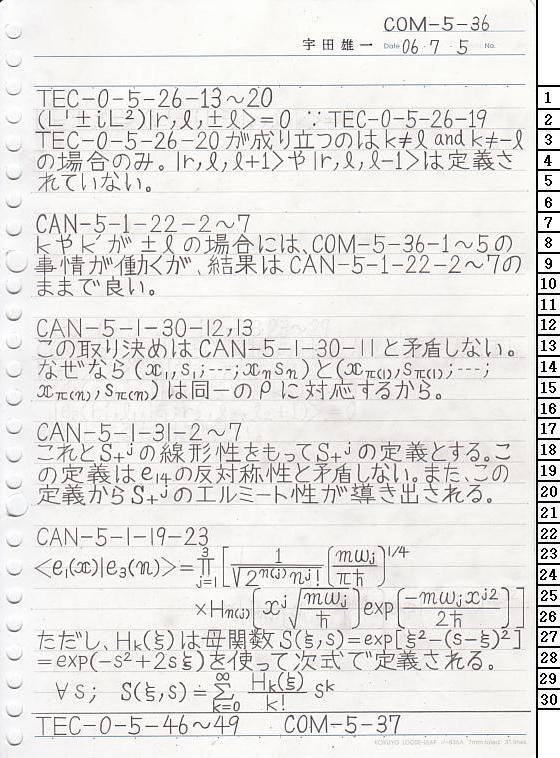 COM-5-36
宇田雄一 Date 06・7・5 No.
TEC-0-5-26-13～20
(L¹±iL²)|r,ℓ,±ℓ>=0 ∵TEC-0-5-26-19
TEC-0-5-26-20が成り立つのはk≠ℓ and k≠-ℓ
の場合のみ。|r,ℓ,ℓ+1>や|r,ℓ,ℓ-1>は定義さ
れていない。
CAN-5-1-22-2～7
kやk′が±ℓの場合には、COM-5-36-1～5の
事情が働くが、結果はCAN-5-1-22-2～7の
ままで良い。
CAN-5-1-30-12,13
この取り決めはCAN-5-1-30-11と矛盾しない。
なぜなら(x₁,s₁;…;xₙsₙ)と(xπ(1),sπ(1);…;
xπ(n),sπ(n))は同一のρに対応するから。
CAN-5-1-31-2～7
これとS₊ʲの線形性をもってS₊ʲの定義とする。こ
の定義はe₁₄の反対称性と矛盾しない。また、この
定義からS₊ʲのエルミート性が導き出される。
CAN-5-1-19-23
<e₁(x)|e₃(n)>=∏_{j=1}^{3}[1/√(2^{n(j)}nʲ!) (mωⱼ/πℏ)^{1/4}
×H_{n(j)}[xʲ√(mωⱼ/ℏ)]exp[-mωⱼxʲ²/2ℏ]]
ただし、Hₖ(ξ)は母関数S(ξ,s)=exp[ξ²-(s-ξ)²]
=exp(-s²+2sξ)を使って次式で定義される。
∀s; S(ξ,s)=∑_{k=0}^{∞} Hₖ(ξ)/k! sᵏ
TEC-0-5-46～49 COM-5-37
KOKUYO LOOSE-LEAF ノ-836A 7mm ruled 31 lines
1
2
3
4
5
6
7
8
9
10
11
12
13
14
15
16
17
18
19
20
21
22
23
24
25
26
27
28
29
30